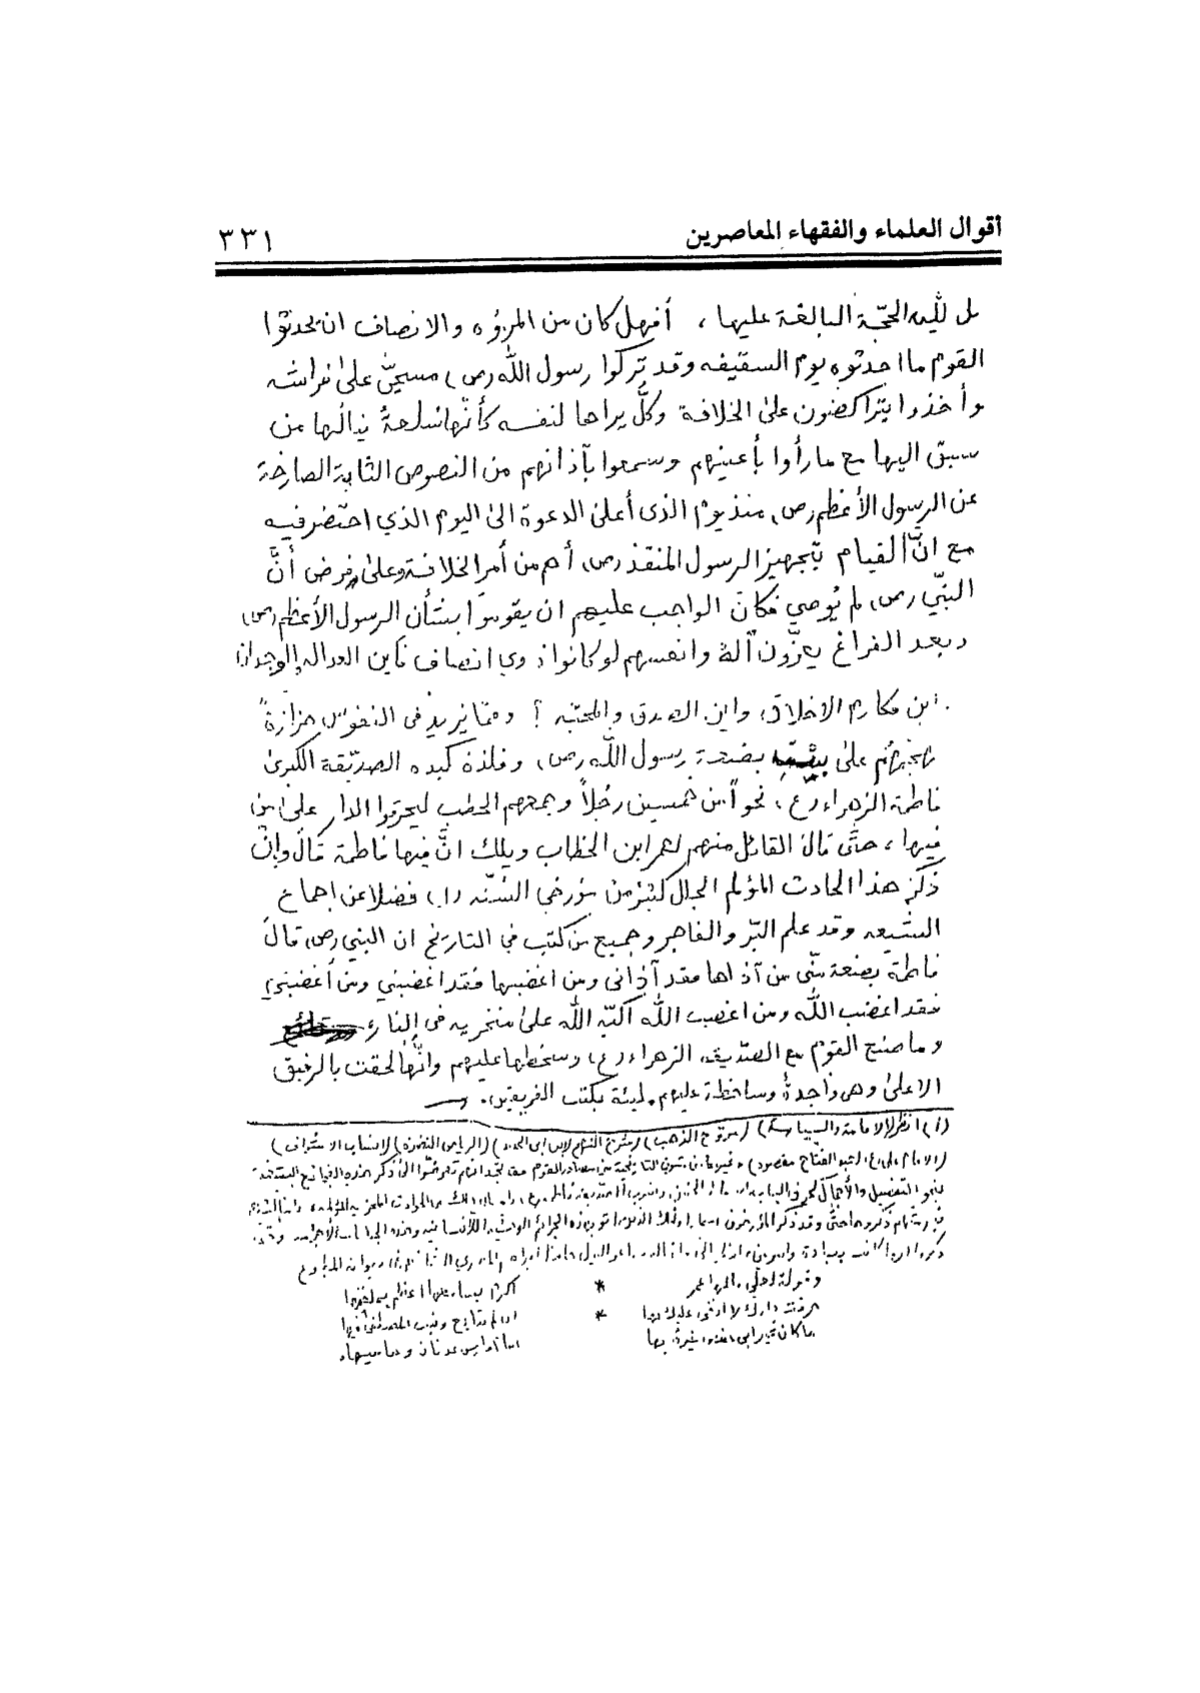 أقوال العلماء والفقهاء المعاصرين ٣٣١
بل لله الحجّة البالغة عليها ، أفهل كان من المروّه والانصاف ان يحدثوا
القوم ما احدثوه يوم السقيفه وقد تركوا رسول الله (ص) مسجىً على فراشه
وأخذوا يتراكضون على الخلافة وكلٌّ يراها لنفسه كأنّها سلعةٌ ينالها من
سبق اليها مع ما رأوا بأعينهم وسمعوا بآذانهم من النصوص الثابتة الصارخة
عن الرسول الأعظم (ص) منذ يوم الذى أعلن الدعوة الى اليوم الذي احتضر فيه
مع انّ القيام بتجهيز الرسول المنقذ (ص) أهم من أمر الخلافة وعلى فرض أنَّ
النبّي (ص) لم يُوصي فكان الواجب عليهم ان يقوموا بشأن الرسول الأعظم (ص)
وبعد الفراغ يعزّون آلهَ وانفسهم لو كانوا ذوي انصاف فأين العداله والوجدان
اين مكارم الاخلاق واين الصدق والمحبّه ! وممّا يزيد فى النفوس حزازةً
تهجمهم على بيت بضعة رسول الله (ص) وفلذة كبده الصدّيقة الكبرى
فاطمة الزهراء (ع) نحواً من خمسين رجُلاً وجمعهم الحطب ليحرقوا الدار على من
فيها ، حتَّى قالَ القائل منهم لعمر ابن الخطاب ويلك انَّ فيها فاطمة قالَ وإنْ
ذكرَ هذا الحادث المؤلم الجلل كثيرٌ من مؤرخي السُنّه (١) فضلا عن اجماع
الشيعه وقد علم البّر والفاجر وجميع من كتب في التاريخ ان النبي (ص) قالَ
فاطمة بضعة منّى من آذاها فقد آذانى ومن اغضبها فقد اغضبني ومن أغضبني
فقد اغضب الله ومن اغضب الله أكبّه الله على منخريه فى النار
وما صنع القومُ مع الصدّيقه الزهراء (ع) وسخطها عليهم وانّها لحقت بالرفيق
الاعلىٰ وهى واجدةٌ وساخطة عليهم مليئة بكتب الفريقين .
(١) انظر (الامامة والسياسة) (مروج الذهب) (شرح النهج لابن ابى الحديد) (الرياض النضرة) (انساب الاشراف)
(الامام على (ع) لعبد الفتاح مقصود) وغيرها من
بنحو التفصيل والأجمال
وقد ذكر المؤرخون اسماء اولئك الذين
وقولة لعليٍ قالها عمر * أكرم بسامعها اعظم بملقيها
حرقت دارك لا ابقي عليك بها * ان لم تبايع وبنت المصطفى فيها
ما كان غير ابى حفص بها
امام فارس عدنان وحاميها